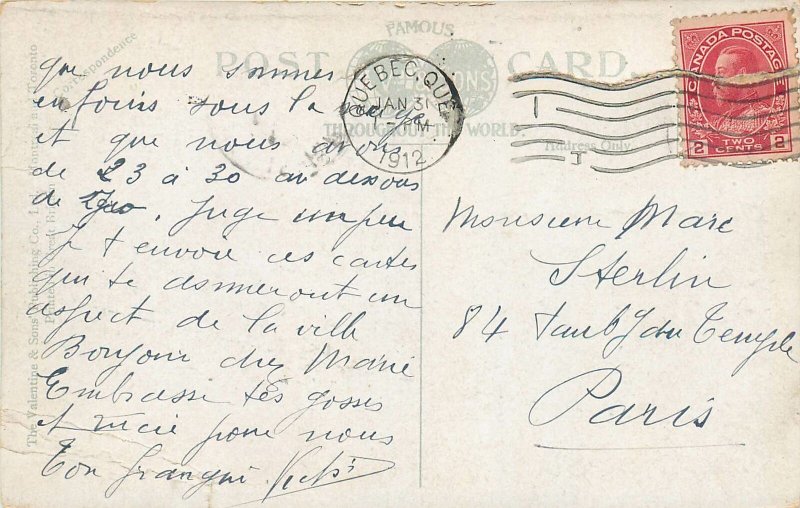 FAMOUS
POST CARD
THROUGHOUT THE WORLD
Correspondence
Address Only
The Valentine & Sons' Publishing Co., Ltd., Montreal and Toronto
Printed in Great Britain
QUEBEC, QUE.
JAN 31
PM
1912
CANADA POSTAGE
2 TWO CENTS 2
que nous sommes
enfouis sous la neige
et que nous avons
de 23 à 30 au dessous
de Juge un peu
Je t envoie ces cartes
qui te donneront un
aspect de la ville
Bonjour chez Marie
Embrasse tes gosses
et Lucie pour nous
Ton frangin
Monsieur Marc
Sterlin
84 Faub g du Temple
Paris